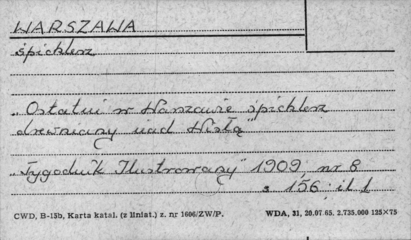 WARSZAWA
spichlerz
„Ostatni w Warszawie spichlerz
drewniany nad Wisłą"
„Tygodnik Ilustrowany" 1909, nr 8
s 156; il 1
CWD, B-15b, Karta katal. (z liniat.) z. nr 1606/ZW/P. WDA, 31, 20.07.65. 2.735.000 125×75